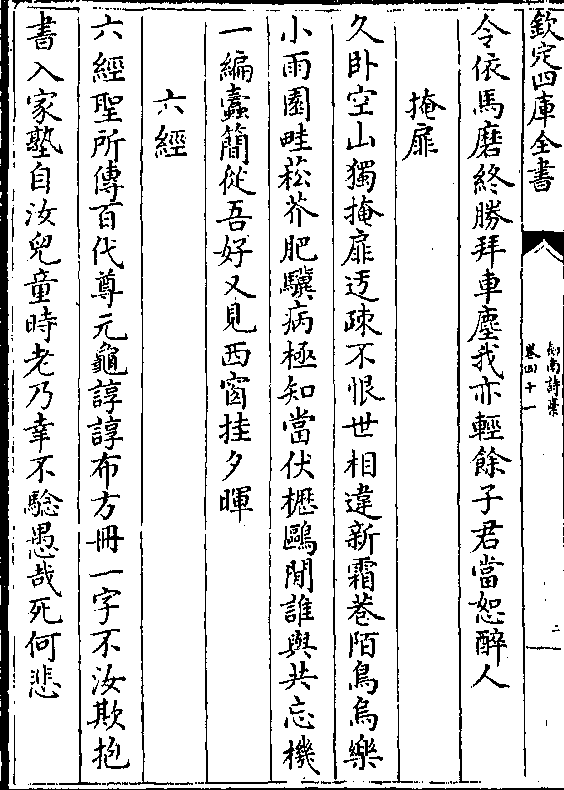 欽定四庫全書
劍南詩藁
卷四十一
二
令依馬磨終勝拜車塵我亦輕餘子君當恕醉人
掩扉
久卧空山獨掩扉迃疎不恨世相違新霜巷陌鳥烏樂
小雨園畦菘芥肥驥病極知當伏櫪鷗閒誰與共忘機
一編蠧簡從吾好又見西窗挂夕暉
六經
六經聖所傳百代尊元龜諄諄布方冊一字不汝欺抱
書入家塾自汝兒童時老乃幸不驗愚哉死何悲